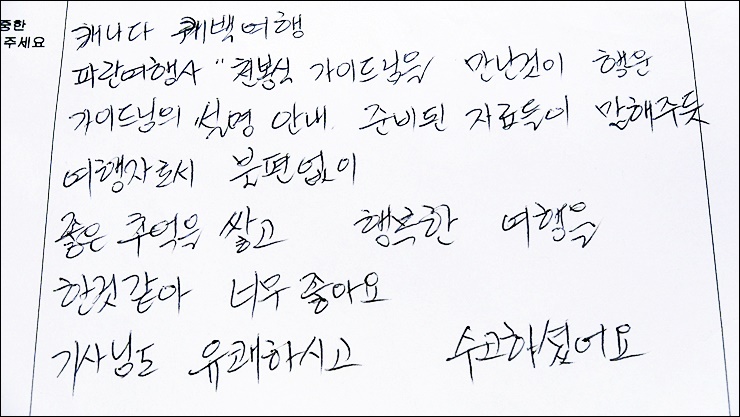 중한
주세요
캐나다 퀘백여행
파란여행사 "천봉식 가이드님을 만난것이 행운
가이드님의 설명 안내. 준비된 자료들이 말해주듯
여행자로서 불편없이
좋은 추억을 쌓고 행복한 여행을
한것같아 너무 좋아요
기사님도 유쾌하시고 수고하셨어요